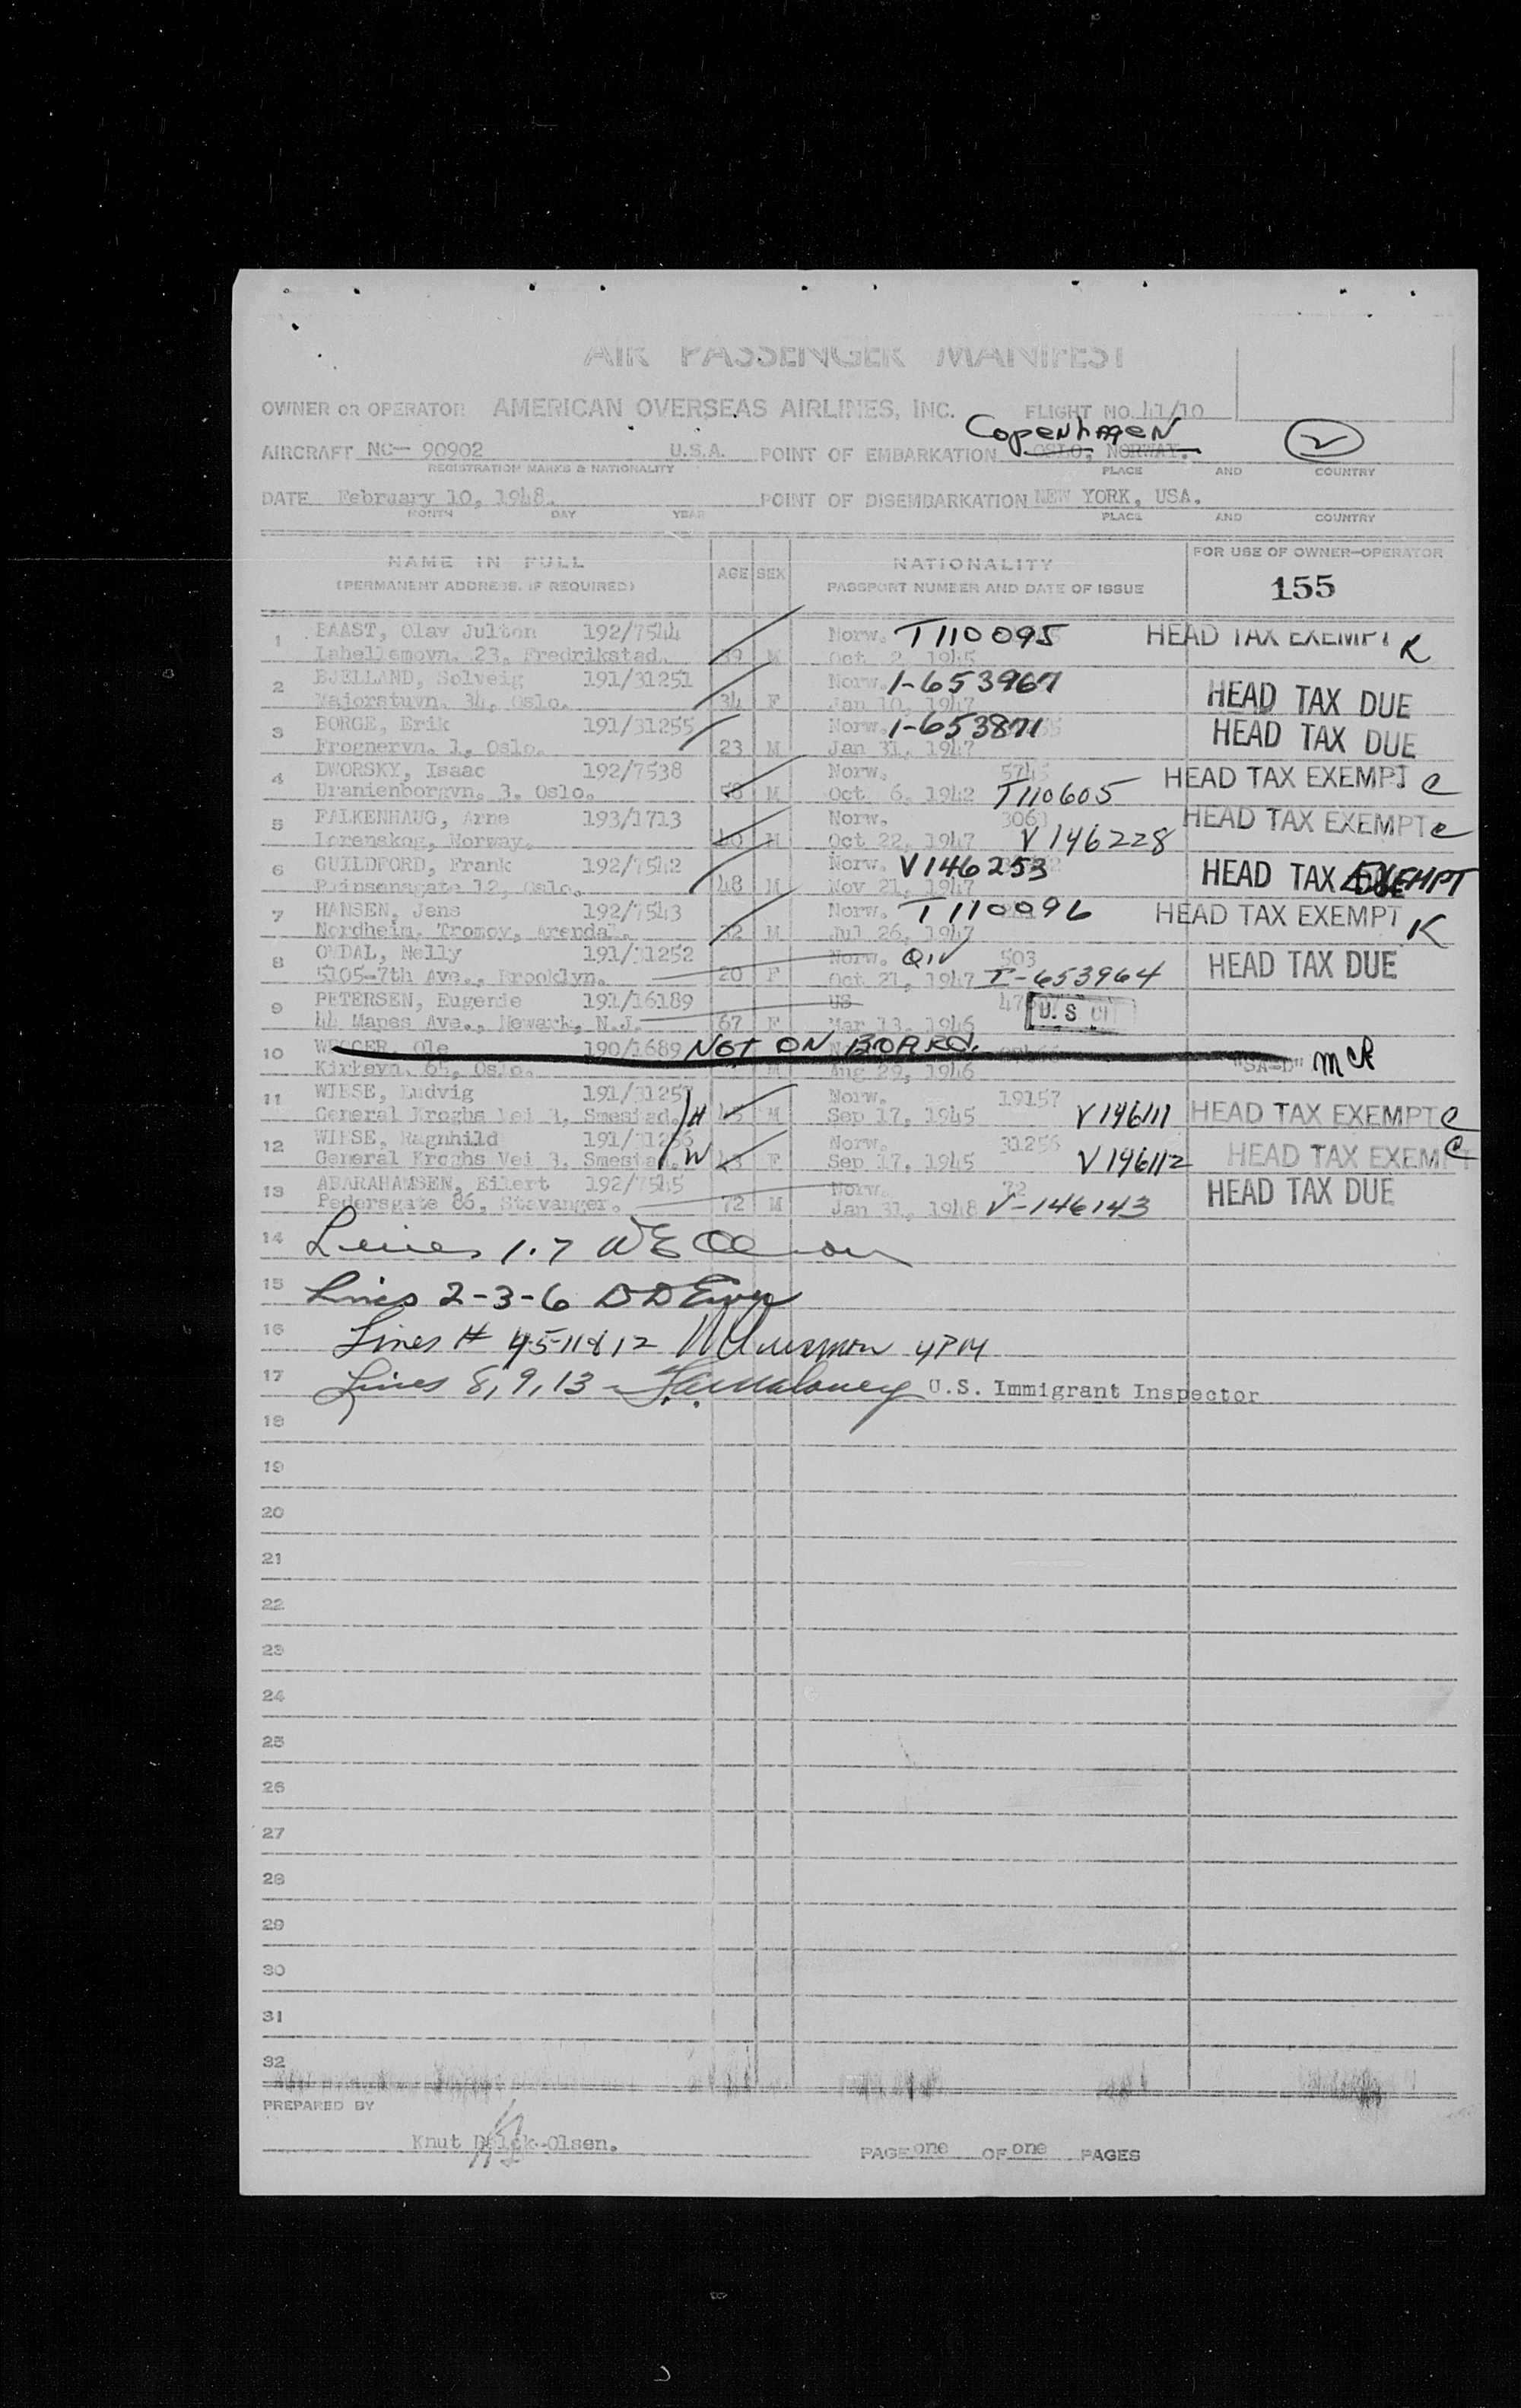 AIR PASSENGER MANIFEST
OWNER OR OPERATOR AMERICAN OVERSEAS AIRLINES, INC. FLIGHT NO. 41/10
Copenhagen
AIRCRAFT NC— 90902 U.S.A. POINT OF EMBARKATION OSLO, NORWAY. 2
REGISTRATION MARKS & NATIONALITY PLACE AND COUNTRY
DATE February 10, 1948. POINT OF DISEMBARKATION NEW YORK, USA.
MONTH DAY YEAR PLACE AND COUNTRY
NAME IN FULL AGE SEX NATIONALITY FOR USE OF OWNER-OPERATOR
(PERMANENT ADDRESS, IF REQUIRED) PASSPORT NUMBER AND DATE OF ISSUE 155
1 BAAST, Olav Julton 192/7544 Norw. T110095 HEAD TAX EXEMPT K
23, Fredrikstad. 39 M Oct 2, 1945
2 BJELLAND, Solveig 191/31251 Norw. 1-653967 HEAD TAX DUE
Majorstuvn. 34, Oslo. 34 F Jan 10, 1947
3 BORGE, Erik 191/31255 Norw. 1-653871 HEAD TAX DUE
Frognervn. 1, Oslo. 23 M Jan 31, 1947
4 DWORSKY, Isaac 192/7538 Norw. 5745 HEAD TAX EXEMPT C
Uranienborgvn. 3. Oslo. 58 M Oct 6, 1942 T110605
5 FALKENHAUG, Arne 193/1713 Norw. 3063 HEAD TAX EXEMPT C
Lorenskog, Norway. 40 M Oct 22, 1947 V146228
6 GUILDFORD, Frank 192/7542 Norw. V146253 HEAD TAX EXEMPT
Prinsensgate 12, Oslo. 48 M Nov 21, 1947
7 HANSEN, Jens 192/7543 Norw. T110096 HEAD TAX EXEMPT K
Nordheim. Tromoy, Arendal. 32 M Jul 26, 1947
8 OMDAL, Nelly 191/31252 Norw. QIV 503 HEAD TAX DUE
5105-7th Ave., Brooklyn. 20 F Oct 21, 1947 I-653964
9 PETERSEN, Eugenie 191/16189 US U.S CI
44 Mapes Ave., Newark, N.J. 67 F Mar 13, 1946
10 Ole 190/1689 NOT ON BOARD.
Kirkevn. 64, Oslo. M Aug 29, 1946
11 WIESE, Ludvig 191/31257 H Norw. 19157
General Kroghs Vei 3, Smestad. 45 M Sep 17, 1945 V146111 HEAD TAX EXEMPT C
12 WIESE, Ragnhild 191/31256 W Norw. 31256
General Kroghs Vei 3. Smestad. 43 F Sep 17, 1945 V146112 HEAD TAX EXEMPT C
13 ABARAHAMSEN, Eilert 192/7545 Norw. 72 HEAD TAX DUE
Pedersgate 86, Stavanger. 72 M Jan 31, 1948 V-146143
14 Lines 1.7
15 Lines 2-3-6
16 Lines # 4-5-11&12 4PM
17 Lines 8, 9, 13 - U.S. Immigrant Inspector
18
19
20
21
22
23
24
25
26
27
28
29
30
31
32
PREPARED BY
Knut Olsen.
PAGE one OF one PAGES